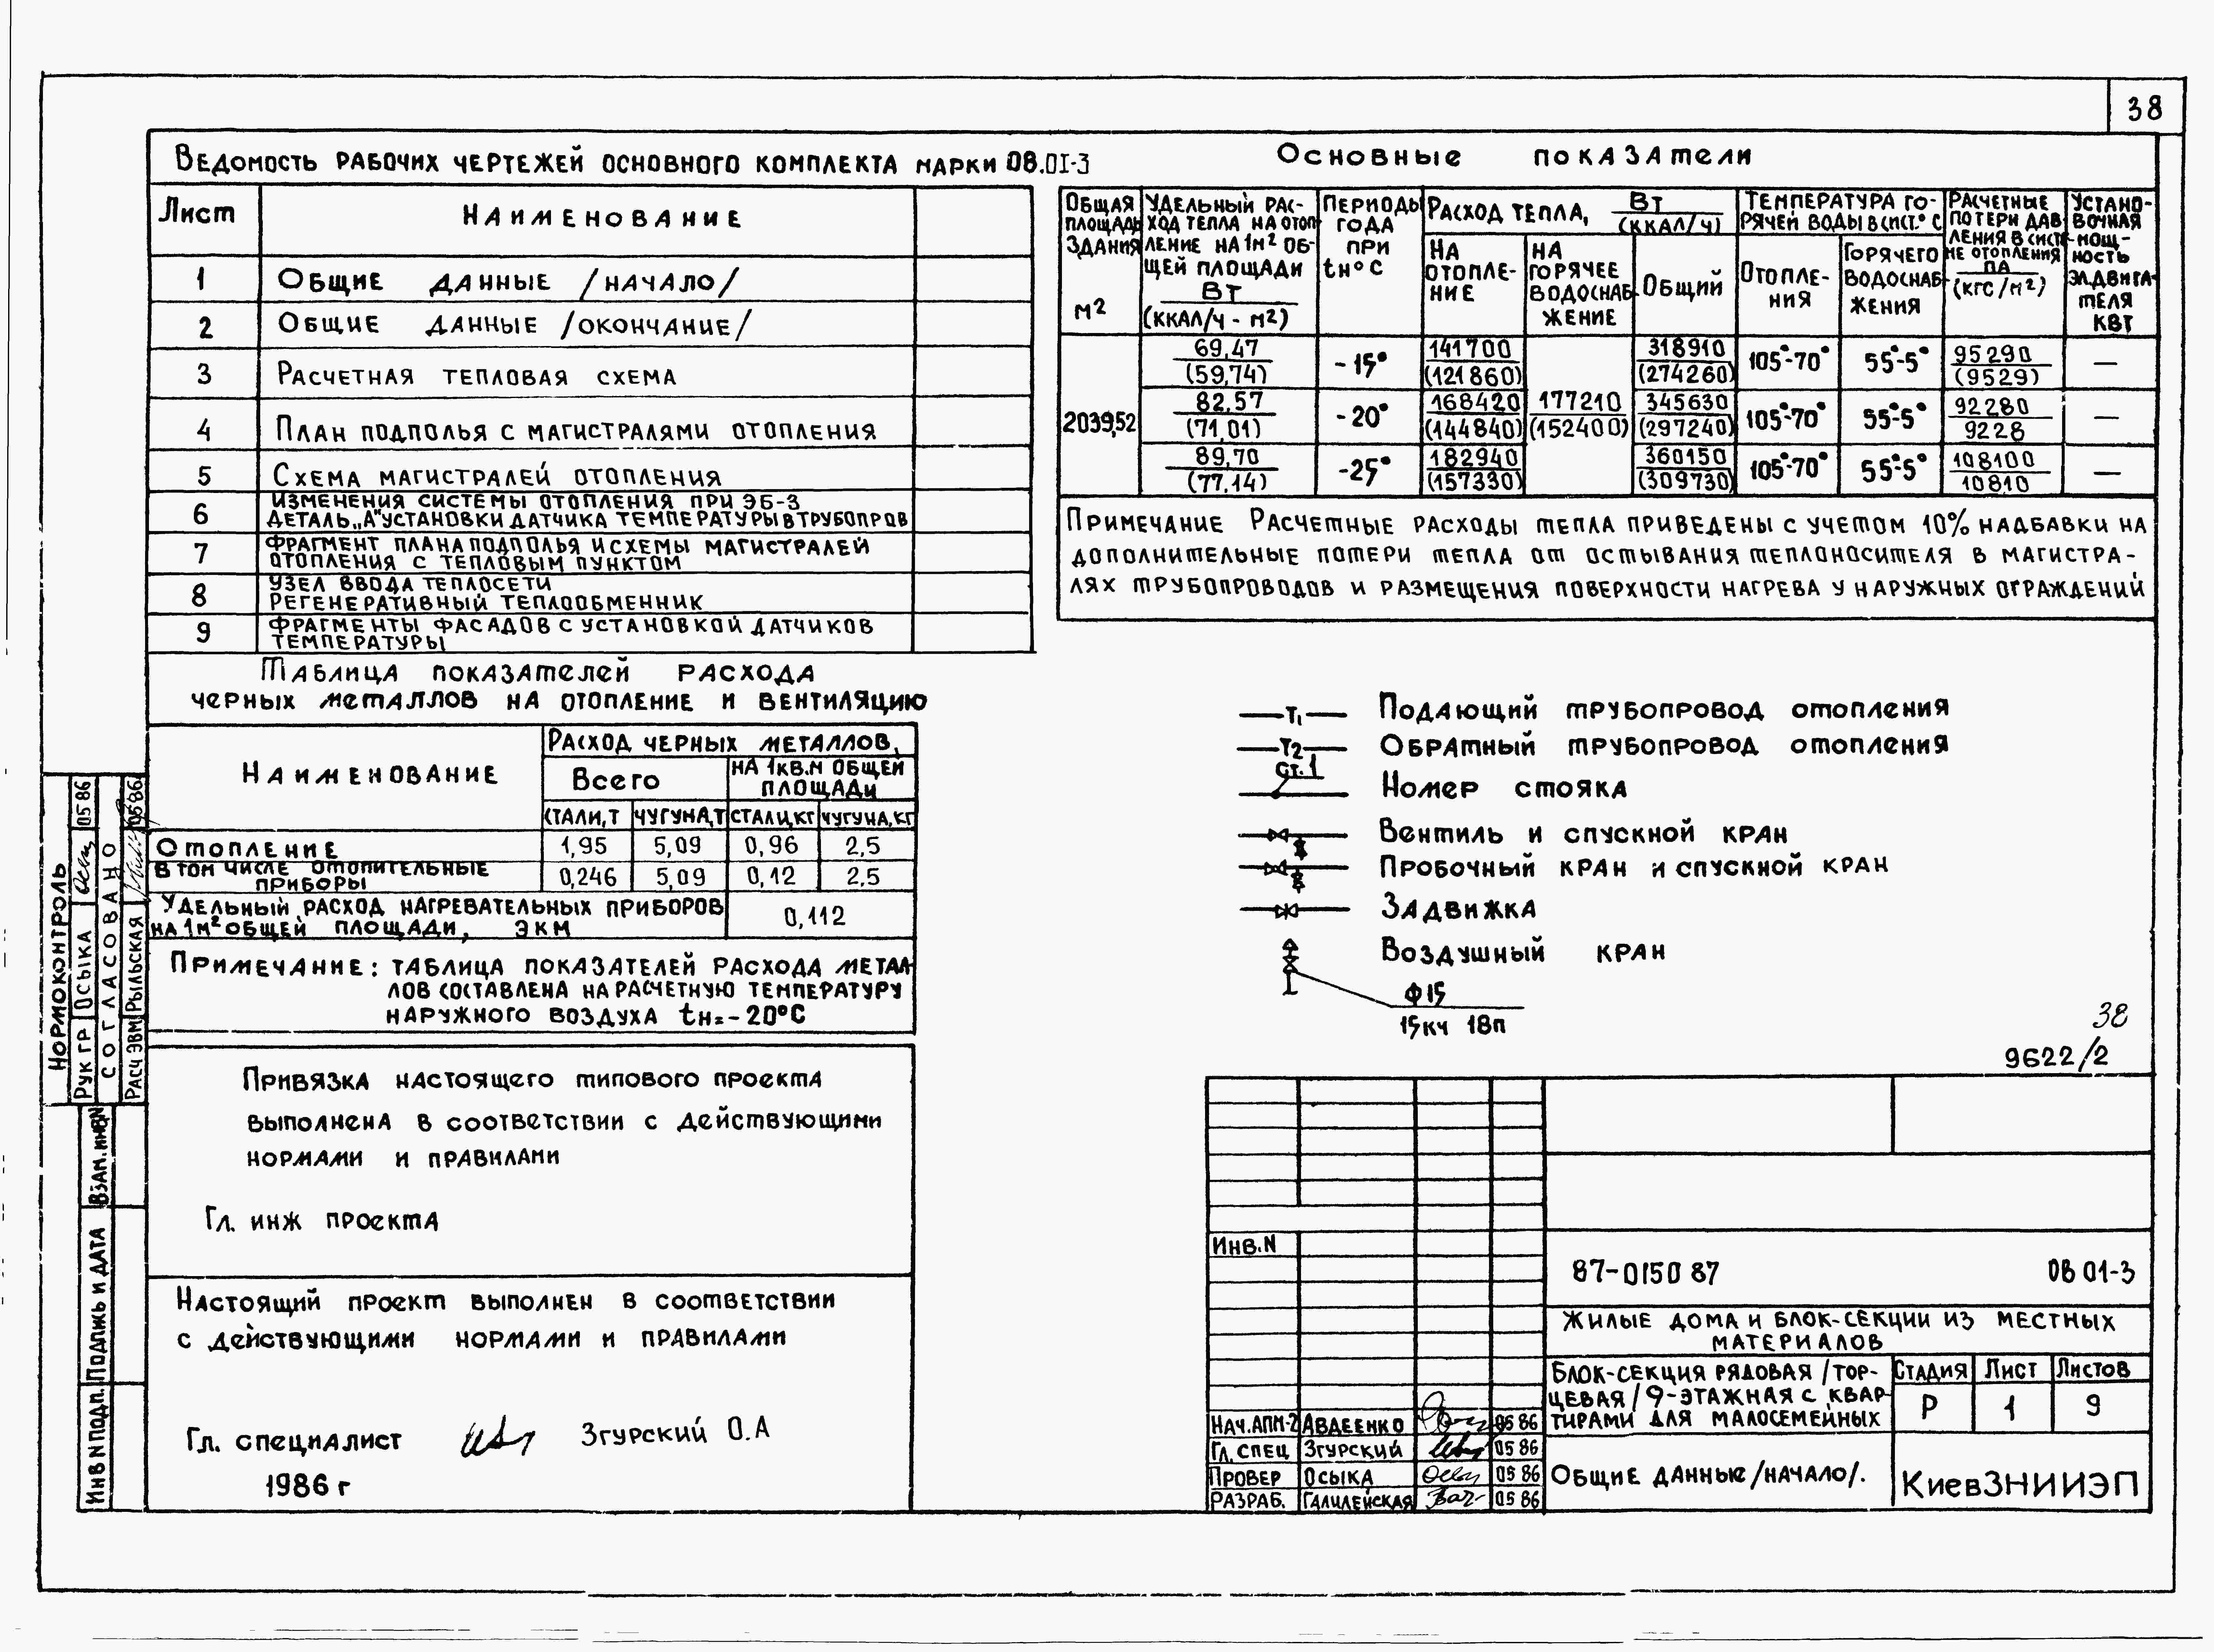 38
Ведомость рабочих чертежей основного комплекта марки 08.01-3
Лист Наименование
1 Общие данные /начало/
2 Общие данные /окончание/
3 Расчетная тепловая схема
4 План подполья с магистралями отопления
5 Схема магистралей отопления
6 Изменения системы отопления при ЭБ-3
Деталь „А" установки датчика температуры в трубопров
7 Фрагмент плана подполья и схемы магистралей
отопления с тепловым пунктом
8 Узел ввода теплосети
Регенеративный теплообменник
9 Фрагменты фасадов с установкой датчиков
температуры
Основные показатели
Общая площадь здания м2
Удельный рас-
ход тепла на отоп
ление на 1м2 об-
щей площади
Вт
(ккал/ч - м2)
Периоды
года
при
tн°С
Расход тепла, Вт
(ккал/ч)
На
отопле-
ние
На
горячее
водоснаб-
жение
Общий
Температура го-
рячей воды в сист.°С
Отопле-
ния
Горячего
водоснаб
жения
Расчетные
потери дав
ления в систе-
ме отопления
Па
(кгс/м2)
Устано-
вочная
мощ-
ность
эл.двига-
теля
кВт
2039,52
69,47 -15° 141700 318910 105°-70° 55°-5° 95290 —
(59,74) (121860) (274260) (9529)
82,57 -20° 168420 177210 345630 105°-70° 55°-5° 92280 —
(71,01) (144840) (152400) (297240) 9228
89,70 -25° 182940 360150 105°-70° 55°-5° 108100 —
(77,14) (157330) (309730) 10810
Примечание Расчетные расходы тепла приведены с учетом 10% надбавки на
дополнительные потери тепла от остывания теплоносителя в магистра-
лях трубопроводов и размещения поверхности нагрева у наружных ограждений
Таблица показателей расхода
черных металлов на отопление и вентиляцию
Наименование
Расход черных металлов,
Всего
на 1кв.м общей
площади
стали,т чугуна,т стали,кг чугуна,кг
Отопление 1,95 5,09 0,96 2,5
в том числе отопительные
приборы 0,246 5,09 0,12 2,5
Удельный расход нагревательных приборов
на 1м2 общей площади, экм 0,112
Примечание: таблица показателей расхода метал-
лов составлена на расчетную температуру
наружного воздуха tн=-20°С
Т1 Подающий трубопровод отопления
Т2 Обратный трубопровод отопления
Ст.1 Номер стояка
Вентиль и спускной кран
Пробочный кран и спускной кран
Задвижка
Воздушный кран
Ф15
15кч 18п
38
9622/2
Привязка настоящего типового проекта
выполнена в соответствии с действующими
нормами и правилами
Гл. инж проекта
Настоящий проект выполнен в соответствии
с действующими нормами и правилами
Гл. специалист Згурский О.А
1986 г
Нормоконтроль
Рук гр Осыка 05 86
Согласовано
Расч ЭВМ Рыльская 05 86
Взам. инв N
Подпись и дата
Инв N подл.
Инв.N
87-0150 87 ОВ 01-3
Жилые дома и блок-секции из местных
материалов
Блок-секция рядовая /тор-
цевая/ 9-этажная с квар-
тирами для малосемейных
Стадия Лист Листов
Р 1 9
Общие данные /начало/.
КиевЗНИИЭП
Нач.АПМ-2 Авдеенко 05 86
Гл. спец Згурский 05 86
Провер Осыка 05 86
Разраб. Галилейская 05 86